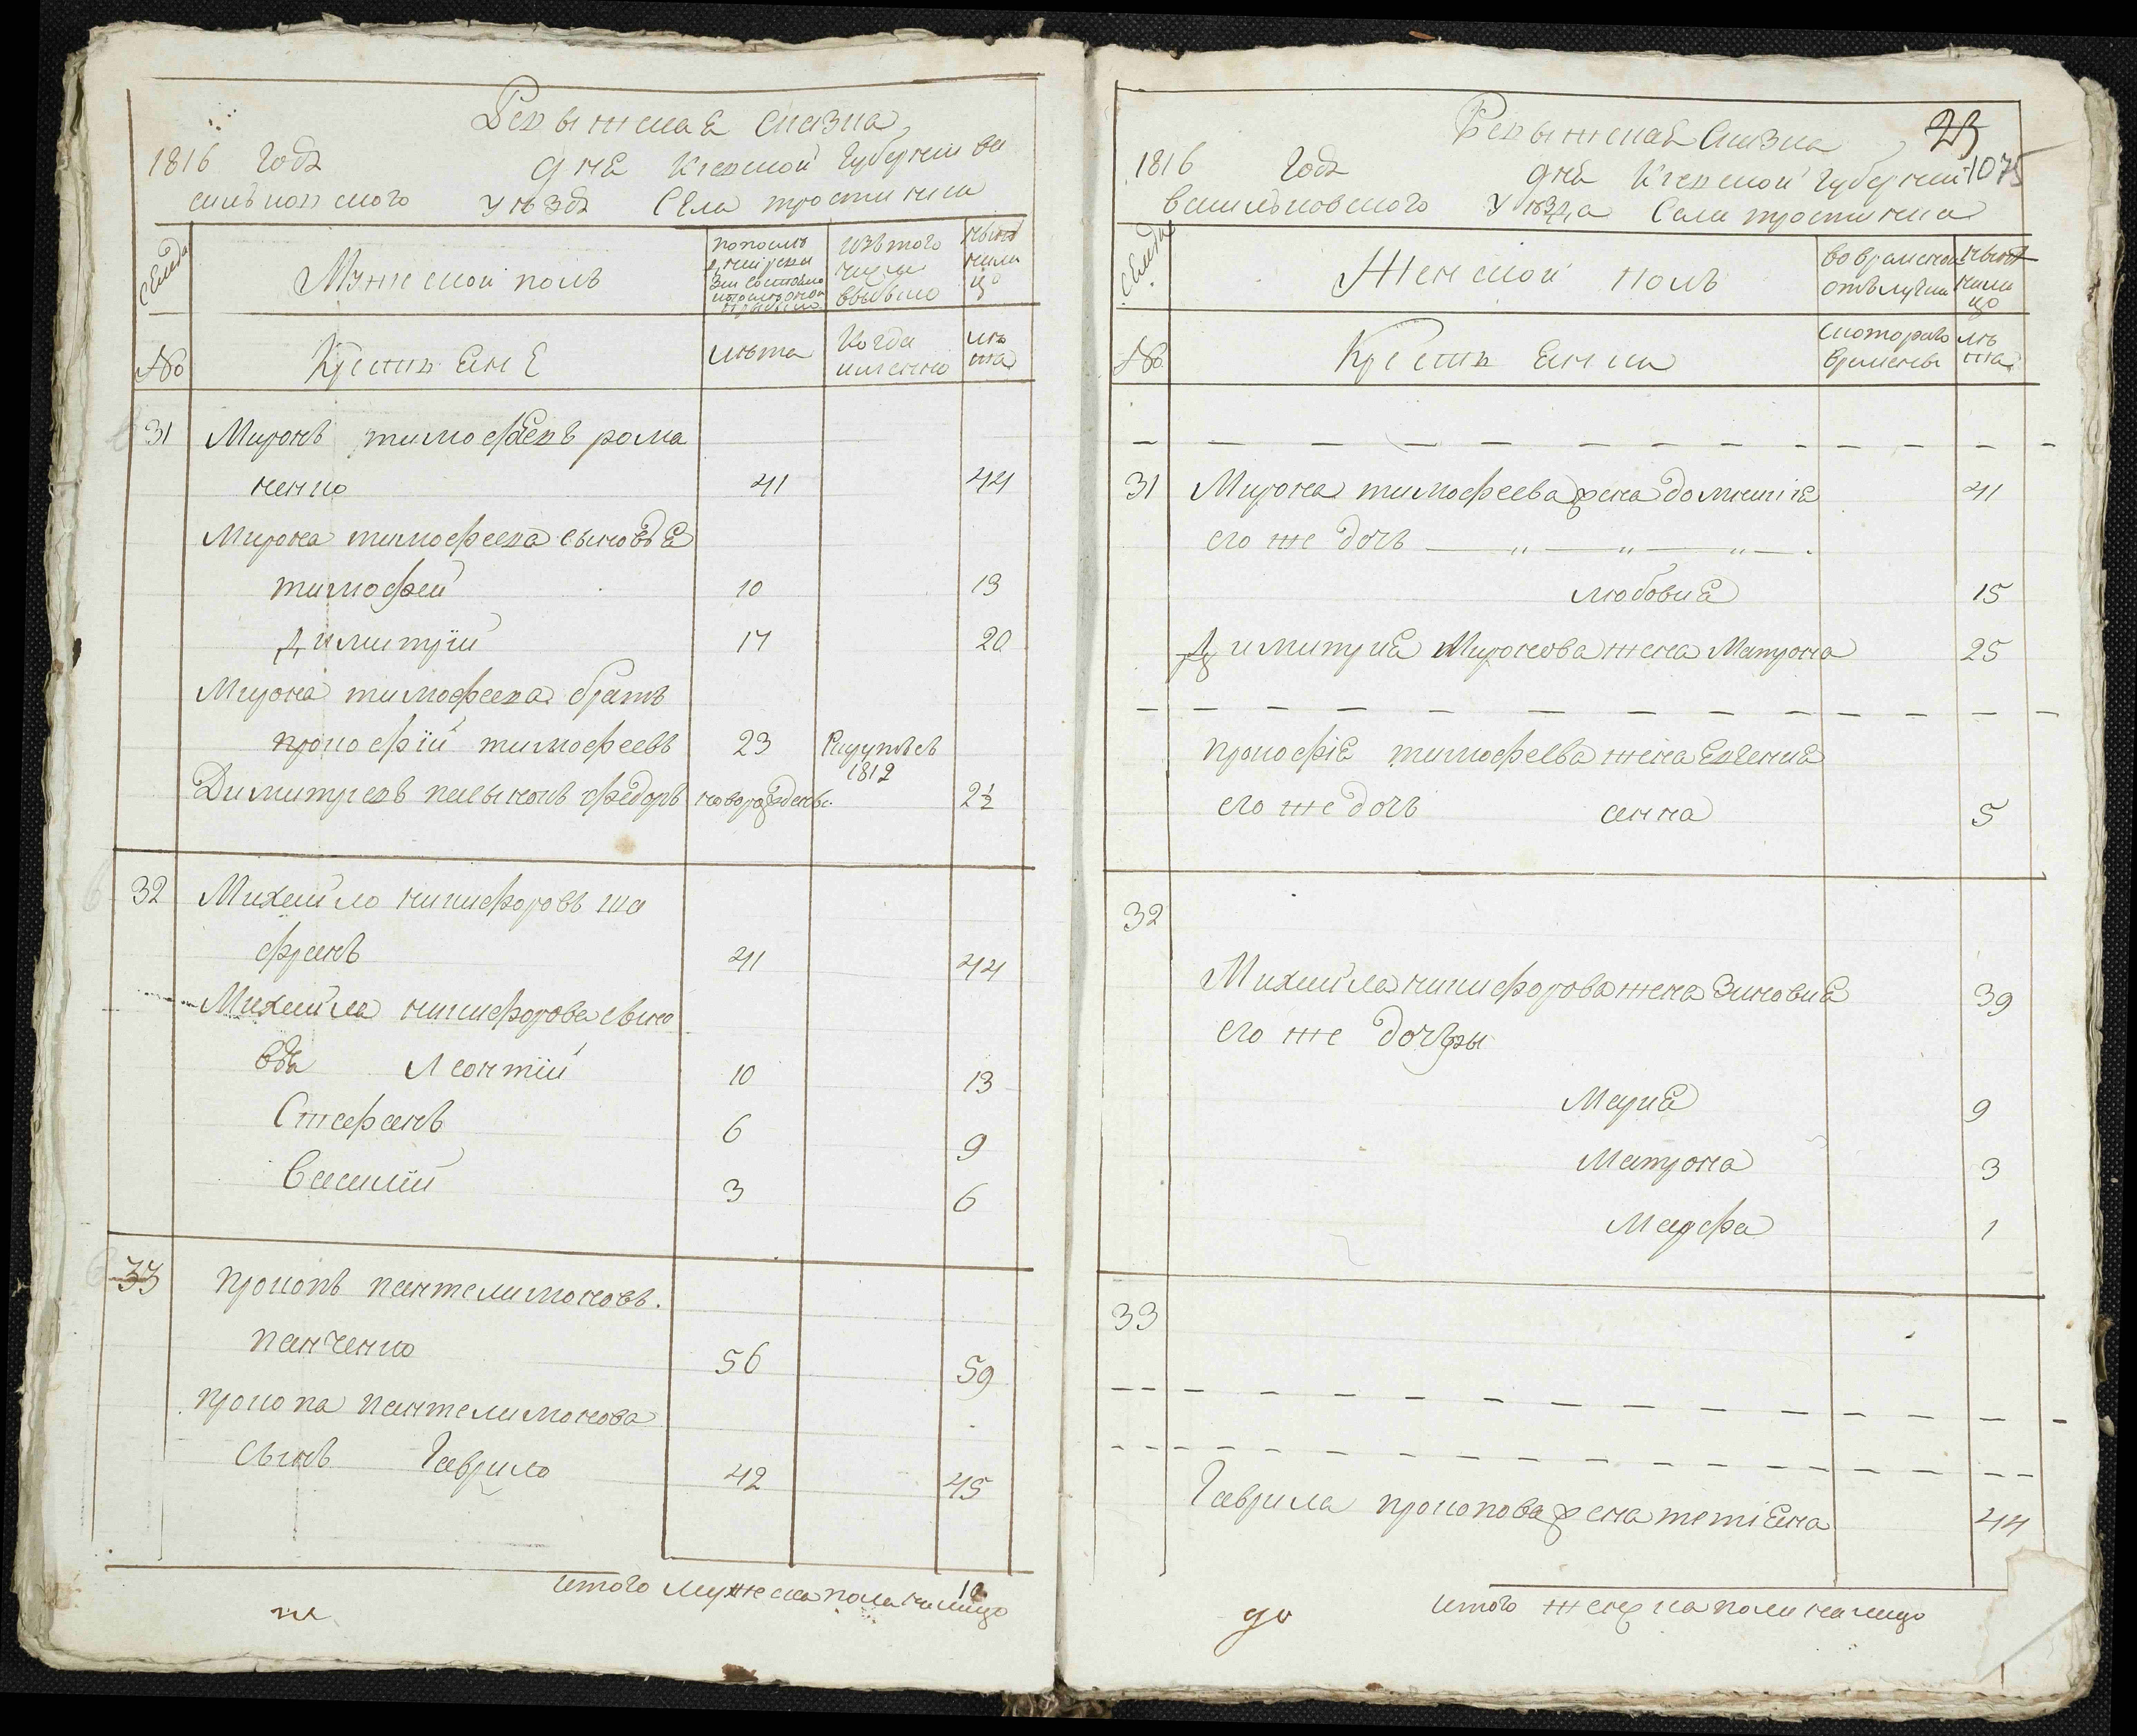 Ревижская Сказка
1816 года дня Киевской Губернии ва
сильковского уезда Села тростинка
Семьи
Мужеской полъ
по последней ревизии состояло и после оной прибыло
Изъ того числа выбыло
Ныне на лицо
№
Крестьяне
лета
Когда именно
лета
31 Миронъ тимофеевъ рома
ненко 41 44
Мирона тимофеева сыновья
тимофей 10 13
Димитрїй 17 20
Мирона тимофеева братъ
прокофїй тимофеевъ 23 1812
Димитриевъ сынъ федоръ новорожденъ. 2½
32 Михайло никифоровъ ша
франъ 41 44
Михайла никифорова сыно
вья Леонтїй 10 13
Стефанъ 6 9
Василїй 3 6
33 прокопъ пантелимоновъ.
панченко 56 59
прокопа пантелимонова
сынъ Гаврило 42 45
итого мужеска пола налицо 10
Ревижская Сказка
25
1075
1816 года дня Киевской Губернии
васильковского уезда Села тростинка
Семьи
Женской полъ
во временной отлучки
Ныне на лицо
№
Крестьянки
с которого времены
лета
31 Мирона тимофеева жена домникия 41
его же дочь
любовия 15
Димитрия Миронова жена Матрона 25
прокофія тимофеева жена Евгения
его же дочь анна 5
32
Михайла никифорова жена Зиновия 39
его же дочеры
Мария 9
Матрона 3
Марфа 1
33
Гаврила прокопова жена тетіяна 44
до
итого женска пола налицо